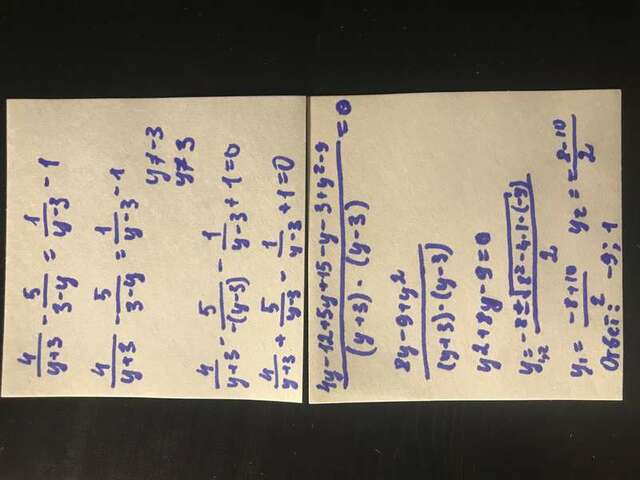 4/(y+3) - 5/(3-y) = 1/(y-3) - 1
4/(y+3) - 5/(3-y) = 1/(y-3) - 1
y≠-3
y≠3
4/(y+3) - 5/(-(y-3)) - 1/(y-3) + 1 = 0
4/(y+3) + 5/(y-3) - 1/(y-3) + 1 = 0
(4y-12+5y+15-y-3+y²-9)/((y+3)·(y-3)) = 0
(8y-9+y²)/((y+3)·(y-3))
y²+8y-9=0
y₁,₂ = (-8±√(8²-4·1·(-9)))/2
y₁ = (-8+10)/2 y₂ = (-8-10)/2
Ответ: -9; 1